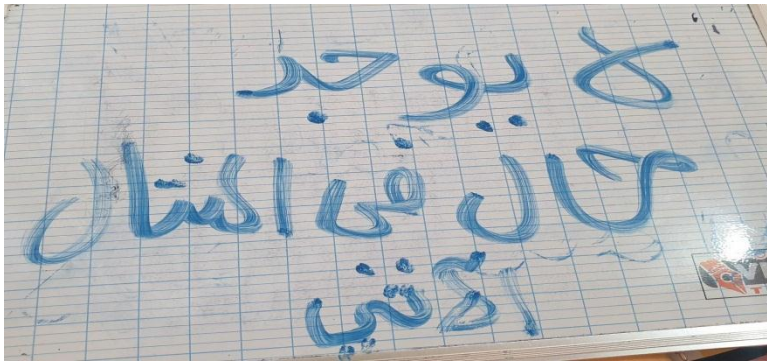 لا يوجد
حال فى المثال
الآتي